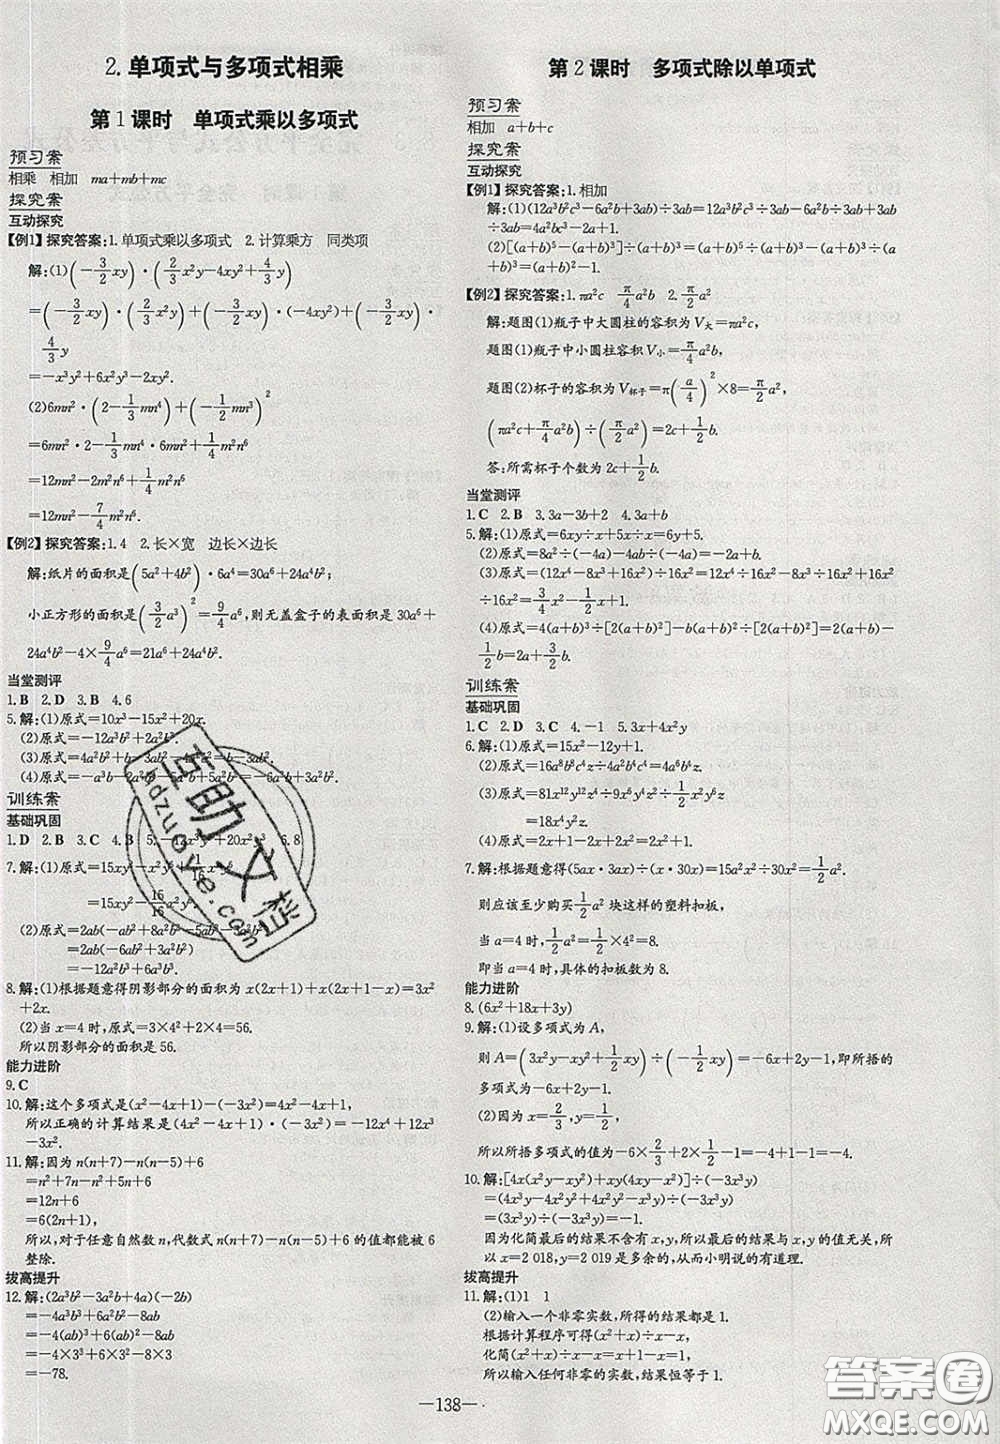 2. 单项式与多项式相乘
第1课时　单项式乘以多项式
预习案
相乘　相加　ma+mb+mc
探究案
互动探究
【例1】探究答案:1.单项式乘以多项式　2.计算乘方　同类项
解:(1)(-3/2xy)·(2/3x²y-4xy²+4/3y)
=(-3/2xy)·2/3x²y+(-3/2xy)·(-4xy²)+(-3/2xy)·
4/3y
=-x³y²+6x²y³-2xy².
(2)6mn²·(2-1/3mn⁴)+(-1/2mn³)²
=6mn²·2-1/3mn⁴·6mn²+1/4m²n⁶
=12mn²-2m²n⁶+1/4m²n⁶
=12mn²-7/4m²n⁶.
【例2】探究答案:1.4　2.长×宽　边长×边长
解:纸片的面积是(5a²+4b²)·6a⁴=30a⁶+24a⁴b²;
小正方形的面积是(3/2a³)²=9/4a⁶,则无盖盒子的表面积是30a⁶+
24a⁴b²-4×9/4a⁶=21a⁶+24a⁴b².
当堂测评
1.B　2.D　3.B　4.6
5.解:(1)原式=10x³-15x²+20x.
(2)原式=-2a³b²+2a²b².
(3)原式=4a²b²+b-3ab
(4)原式=-a³b
训练案
基础巩固
1.D　2.B　3.C　4.B　5.-12x³y²+20x²y³　6.8
7.解:(1)原式=15xy²
=15xy²
(2)原式=2ab(-ab²+8ab²)
=2ab(-6ab²+ab²)
=-12a²b³+a²b³.
8.解:(1)根据题意得阴影部分的面积为x(2x+1)+x(2x+1-x)=3x²
+2x.
(2)当x=4时,原式=3×4²+2×4=56.
所以阴影部分的面积是56.
能力进阶
9.C
10.解:这个多项式是(x²-4x+1)-(-3x²)=4x²-4x+1,
所以正确的计算结果是(4x²-4x+1)·(-3x²)=-12x⁴+12x³
-3x².
11.解:因为n(n+7)-n(n-5)+6
=n²+7n-n²+5n+6
=12n+6
=6(2n+1),
所以,对于任意自然数n,代数式n(n+7)-n(n-5)+6的值都能被6
整除.
拔高提升
12.解:(2a³b²-3a²b+4a)(-2b)
=-4a³b³+6a²b²-8ab
=-4(ab)³+6(ab)²-8ab
=-4×3³+6×3²-8×3
=-78.
第2课时　多项式除以单项式
预习案
相加　a+b+c
探究案
互动探究
【例1】探究答案:1.相加
解:(1)(12a³b²c³-6a²b+3ab)÷3ab=12a³b²c³÷3ab-6a²b÷3ab+3ab
÷3ab=4a²bc³-2a+1.
(2)[(a+b)⁵-(a+b)³]÷(a+b)³=(a+b)⁵÷(a+b)³-(a+b)³÷(a
+b)³=(a+b)²-1.
【例2】探究答案:1.πa²c　π/4a²b　2.π/2a²
解:题图(1)瓶子中大圆柱的容积为V大=πa²c,
题图(1)瓶子中小圆柱容积V小=π/4a²b,
题图(2)杯子的容积为V杯子=π(a/4)²×8=π/2a²,
(πa²c+π/4a²b)÷(π/2a²)=2c+1/2b.
答:所需杯子个数为2c+1/2b.
当堂测评
1.C　2.B　3.3a-3b+2　4.3a+b
5.解:(1)原式=6xy÷x+5x÷x=6y+5.
(2)原式=8a²÷(-4a)-4ab÷(-4a)=-2a+b.
(3)原式=(12x⁴-8x³+16x²)÷16x²=12x⁴÷16x²-8x³÷16x²+16x²
÷16x²=3/4x²-1/2x+1.
(4)原式=4(a+b)³÷[2(a+b)²]-b(a+b)²÷[2(a+b)²]=2(a+b)-
1/2b=2a+3/2b.
训练案
基础巩固
1.C　2.D　3.C　4.-1　5.3x+4x²y
6.解:(1)原式=15x²-12y+1.
(2)原式=16a⁸b⁸c⁴÷4ab²c²
(3)原式=81x¹²y¹²÷9x⁶y⁴÷1/2x²y⁶
=18x⁴y².
(4)原式=2x+1-4x+1=-2x+2.
7.解:根据题意得(5ax·3ax)÷(x·30x)=15a²x²÷30x²=1/2a²,
则应该至少购买1/2a²块这样的塑料扣板,
当a=4时,原式=1/2×4²=8.
即当a=4时,具体的扣板数为8.
能力进阶
8.(6x²+18x+3y)
9.解:(1)设多项式为A,
则A=(3x²y-xy²+1/2xy)÷(-1/2xy)=-6x+2y-1,即所捂的
多项式为-6x+2y-1.
(2)因为x=2/3,y=1/2,
所以所捂多项式的值为-6×2/3+2×1/2-1=-4+1-1=-4.
10.解:[4x(x²y-xy²)+xy(4xy-x²)]÷(-3x³y)
=(4x³y-4x²y²+4x²y²-x³y)÷(-3x³y)
=(3x³y)÷(-3x³y)
=-1.
因为化简最后的结果不含有x,y,所以最后的结果与x,y的值无关,所
以x=2 018,y=2 019是多余的,从而小明说的有道理.
拔高提升
11.解:(1)1　1
(2)输入一个非零实数,所得的结果都是1.
根据计算程序可得(x²+x)÷x-x,
化简(x²+x)÷x-x=x+1-x=1,
所以输入任何非零的实数,结果恒等于1.
—138—
互助文档
hdzuoye.com
答案圈
MXQE.COM